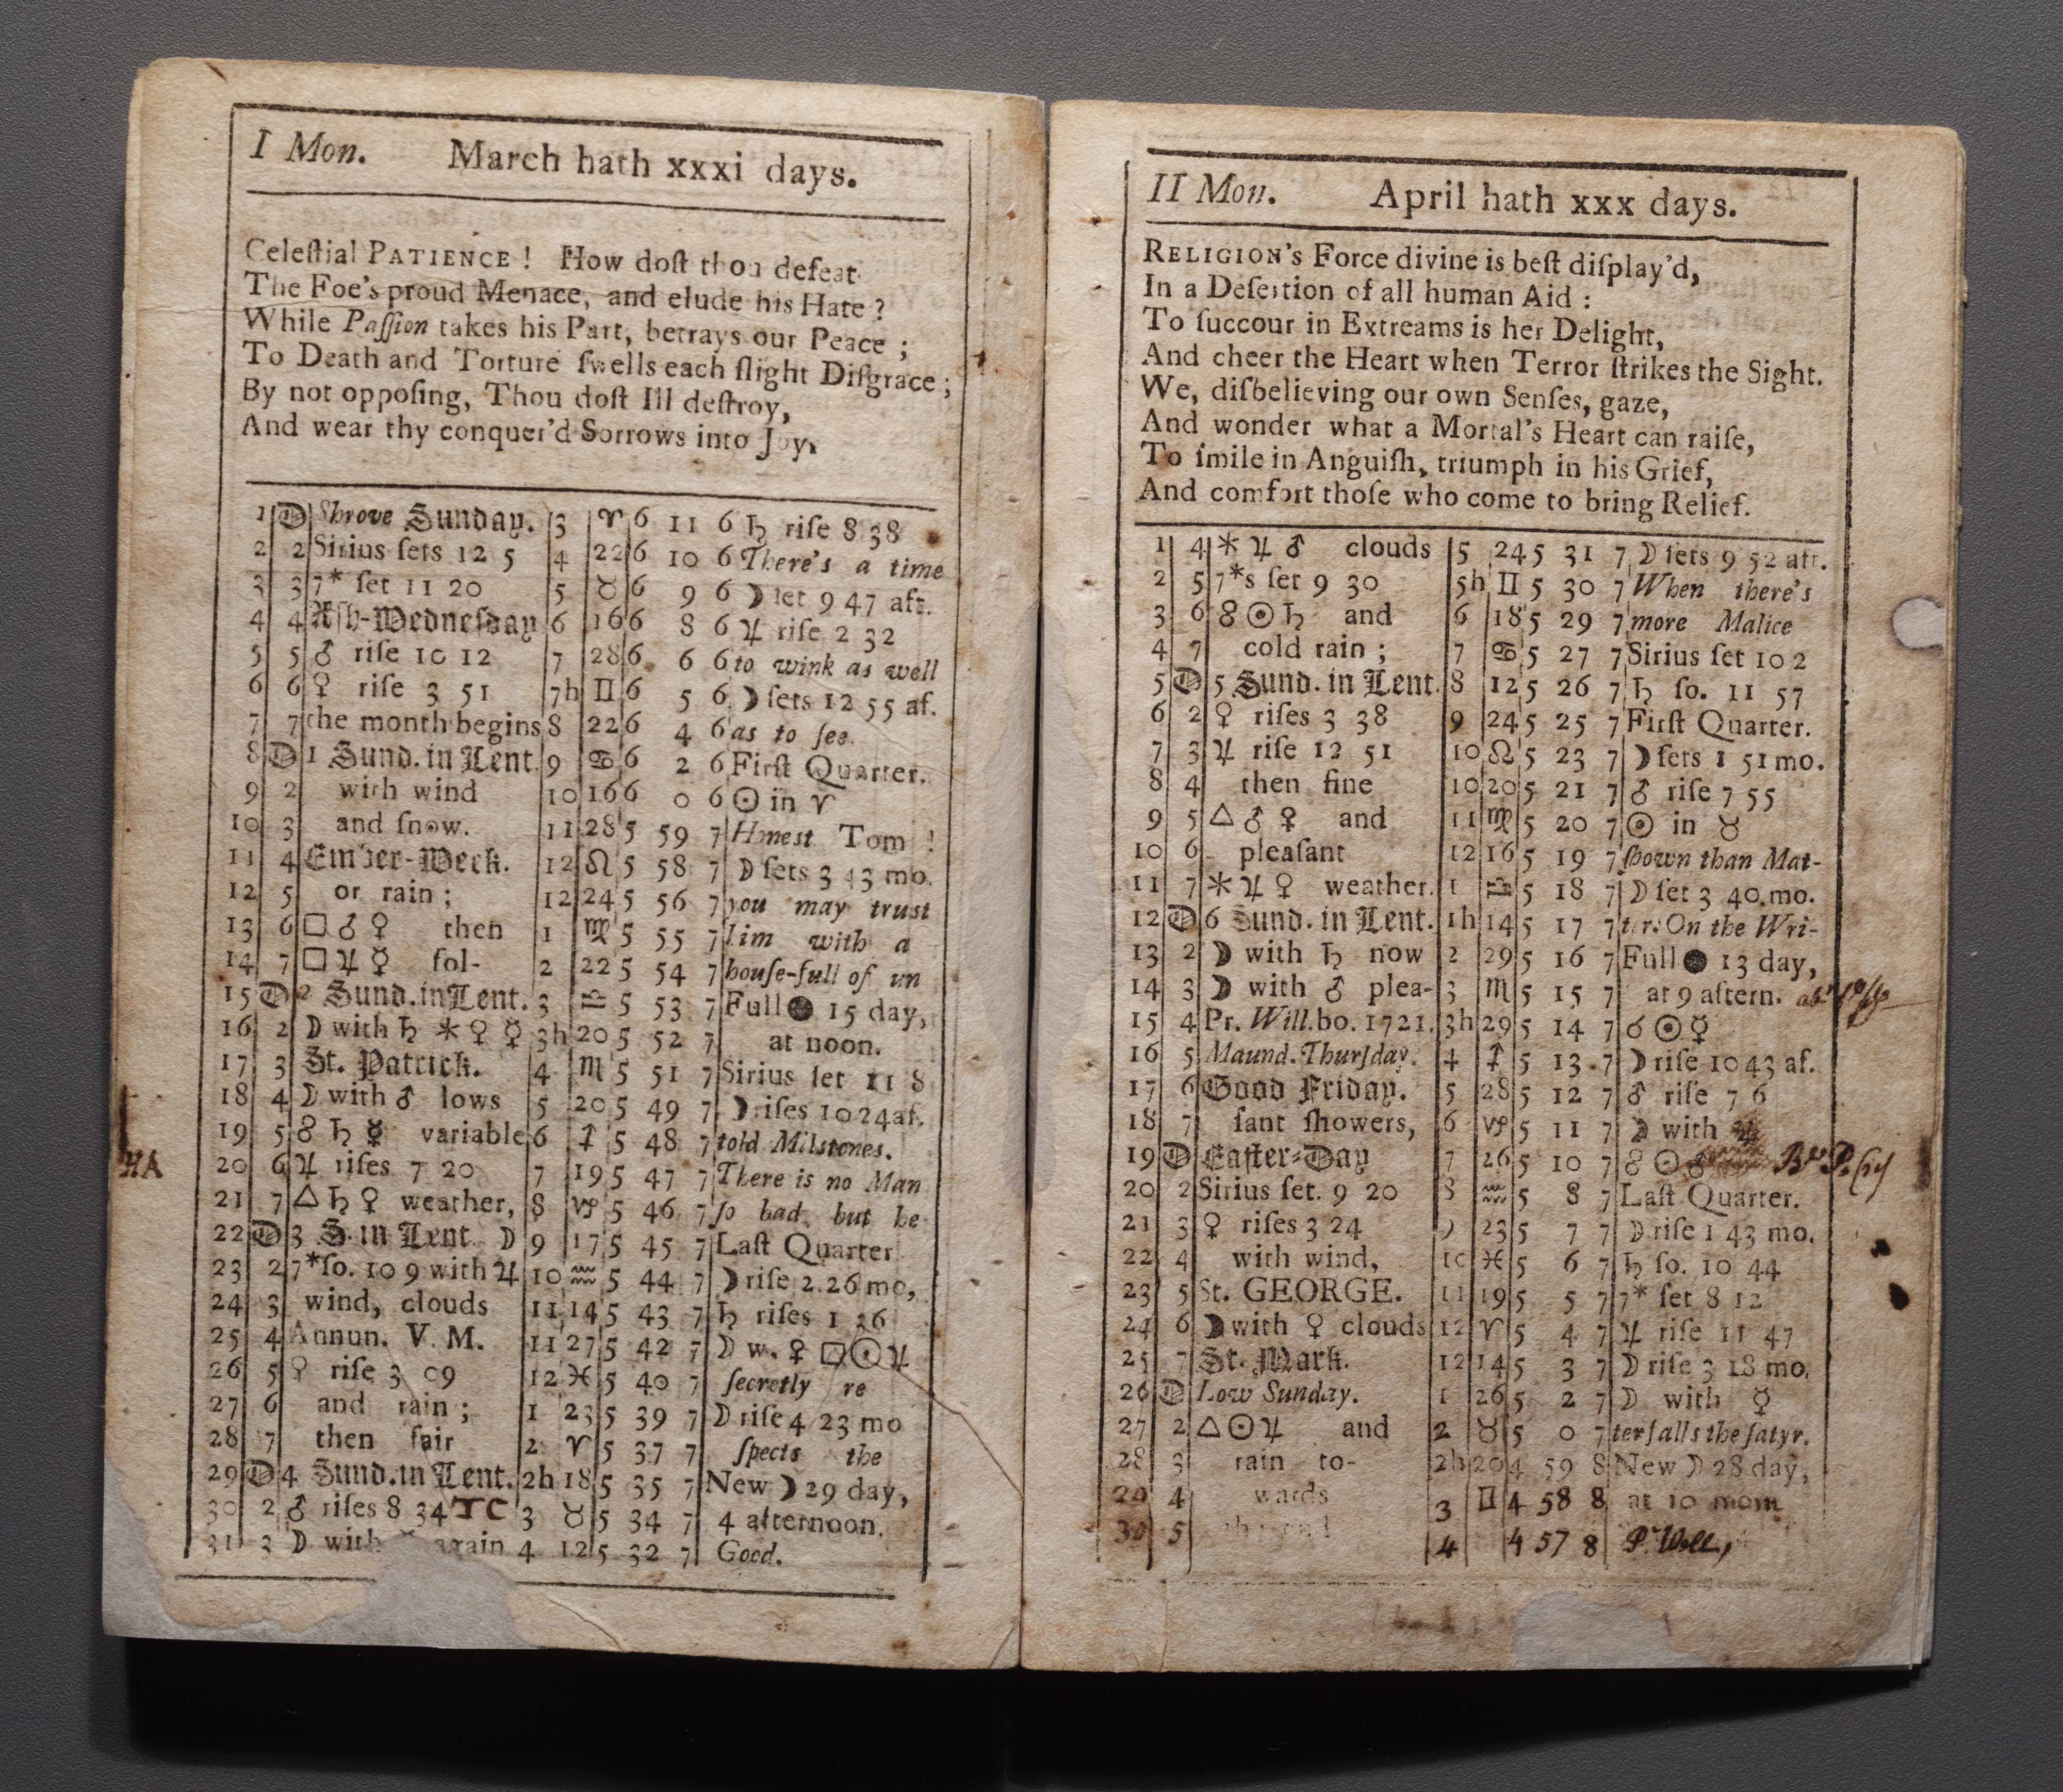 I Mon. March hath xxxi days.
Celeſtial PATIENCE ! How doſt thou defeat
The Foe's proud Menace, and elude his Hate ?
While Paſſion takes his Part, betrays our Peace ;
To Death and Torture ſwells each ſlight Diſgrace ;
By not oppoſing, Thou doſt Ill deſtroy,
And wear thy conquer'd Sorrows into Joy.
1 D Shrove Sunday. 3 ♈ 6 11 6 ♄ riſe 8 38
2 2 Sirius ſets 12 5 4 22 6 10 6 There's a time
3 3 7* ſet 11 20 5 ♉ 6 9 6 ☽ ſet 9 47 aft.
4 4 Aſh-Wedneſday 6 16 6 8 6 ♃ riſe 2 32
5 5 ♂ riſe 10 12 7 28 6 6 6 to wink as well
6 6 ♀ riſe 3 51 7h ♊ 6 5 6 ☽ ſets 12 55 af.
7 7 the month begins 8 22 6 4 6 as to ſee.
8 D 1 Sund. in Lent. 9 ♋ 6 2 6 Firſt Quarter.
9 2 with wind 10 16 6 0 6 ☉ in ♈
10 3 and ſnow. 11 28 5 59 7 Honest Tom !
11 4 Ember-Week. 12 ♌ 5 58 7 ☽ ſets 3 43 mo.
12 5 or rain ; 12 24 5 56 7 you may trust
13 6 □ ♂ ♀ then 1 ♍ 5 55 7 him with a
14 7 □ ♃ ☿ fol- 2 22 5 54 7 houſe-full of un
15 D 2 Sund. in Lent. 3 ♎ 5 53 7 Full ● 15 day,
16 2 ☽ with ♄ ⚹ ♀ ☿ 3h 20 5 52 7 at noon.
17 3 St. Patrick. 4 ♏ 5 51 7 Sirius ſet 11 8
18 4 ☽ with ♂ lows 5 20 5 49 7 ☽ riſes 10 24 af.
19 5 ☍ ♄ ☿ variable 6 ♐ 5 48 7 told Milstones.
HA 20 6 ♃ riſes 7 20 7 19 5 47 7 There is no Man
21 7 △ ♄ ♀ weather, 8 ♑ 5 46 7 ſo bad, but he
22 D 3 S. in Lent. ☽ 9 17 5 45 7 Laſt Quarter
23 2 7*ſo. 10 9 with ♃ 10 ♒ 5 44 7 ☽ riſe 2 26 mo,
24 3 wind, clouds 11 14 5 43 7 ♄ riſes 1 26
25 4 Annun. V. M. 11 27 5 42 7 ☽ w. ♀ □ ☉ ♃
26 5 ♀ riſe 3 09 12 ♓ 5 40 7 ſecretly re
27 6 and rain ; 1 23 5 39 7 ☽ riſe 4 23 mo
28 7 then fair 2 ♈ 5 37 7 ſpects the
29 D 4 Sund. in Lent. 2h 18 5 35 7 New ☽ 29 day,
30 2 ♂ riſes 8 34 TC 3 ♉ 5 34 7 4 afternoon.
31 3 ☽ with again 4 12 5 32 7 Good.
II Mon. April hath xxx days.
RELIGION's Force divine is beſt diſplay'd,
In a Deſertion of all human Aid :
To ſuccour in Extreams is her Delight,
And cheer the Heart when Terror ſtrikes the Sight.
We, diſbelieving our own Senſes, gaze,
And wonder what a Mortal's Heart can raiſe,
To ſmile in Anguiſh, triumph in his Grief,
And comfort thoſe who come to bring Relief.
1 4 ⚹ ♃ ♂ clouds 5 24 5 31 7 ☽ ſets 9 52 aft.
2 5 7*s ſet 9 30 5h ♊ 5 30 7 When there's
3 6 ☍ ☉ ♄ and 6 18 5 29 7 more Malice
4 7 cold rain ; 7 ♋ 5 27 7 Sirius ſet 10 2
5 D 5 Sund. in Lent. 8 12 5 26 7 ♄ ſo. 11 57
6 2 ♀ riſes 3 38 9 24 5 25 7 Firſt Quarter.
7 3 ♃ riſe 12 51 10 ♌ 5 23 7 ☽ ſets 1 51 mo.
8 4 then fine 10 20 5 21 7 ♂ riſe 7 55
9 5 △ ♂ ♀ and 11 ♍ 5 20 7 ☉ in ♉
10 6 pleaſant 12 16 5 19 7 ſhown than Mat-
11 7 ⚹ ♃ ♀ weather. 1 ♎ 5 18 7 ☽ ſet 3 40 mo.
12 D 6 Sund. in Lent. 1h 14 5 17 7 ter: On the Wri-
13 2 ☽ with ♄ now 2 29 5 16 7 Full ● 13 day,
14 3 ☽ with ♂ plea- 3 ♏ 5 15 7 at 9 aftern.
15 4 Pr. Will. bo. 1721. 3h 29 5 14 7 ☌ ☉ ☿
16 5 Maund. Thurſday. 4 ♐ 5 13 7 ☽ riſe 10 43 af.
17 6 Good Friday. 5 28 5 12 7 ♂ riſe 7 6
18 7 ſant ſhowers, 6 ♑ 5 11 7 ☽ with ♃
19 D Eaſter-Day 7 26 5 10 7 ☍ ☉ ♂
20 2 Sirius ſet. 9 20 8 ♒ 5 8 7 Laſt Quarter.
21 3 ♀ riſes 3 24 9 23 5 7 7 ☽ riſe 1 43 mo.
22 4 with wind, 10 ♓ 5 6 7 ♄ ſo. 10 44
23 5 St. GEORGE. 11 19 5 5 7 7* ſet 8 12
24 6 ☽ with ♀ clouds 12 ♈ 5 4 7 ♃ riſe 11 47
25 7 St. Mark. 12 14 5 3 7 ☽ riſe 3 18 mo.
26 D Low Sunday. 1 26 5 2 7 ☽ with ☿
27 2 △ ☉ ♃ and 2 ♉ 5 0 7 ter falls the ſatyr.
28 3 rain to- 2h 20 4 59 8 New ☽ 28 day,
29 4 wards 3 ♊ 4 58 8 at 10 morn
30 5 4 4 57 8